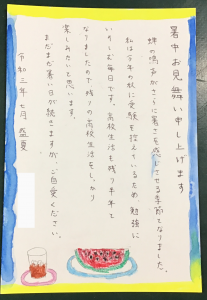 暑中お見舞い申し上げます
蝉の鳴声がさらに暑さを感じさせる季節となりました。
私は今年の秋に受験を控えているため勉強に
いそしむ毎日です。高校生活も残り半年と
なりましたので残りの高校生活をしっかり
楽しみたいと思います。
まだまだ暑い日が続きますが、ご自愛ください。
令和三年七月 盛夏